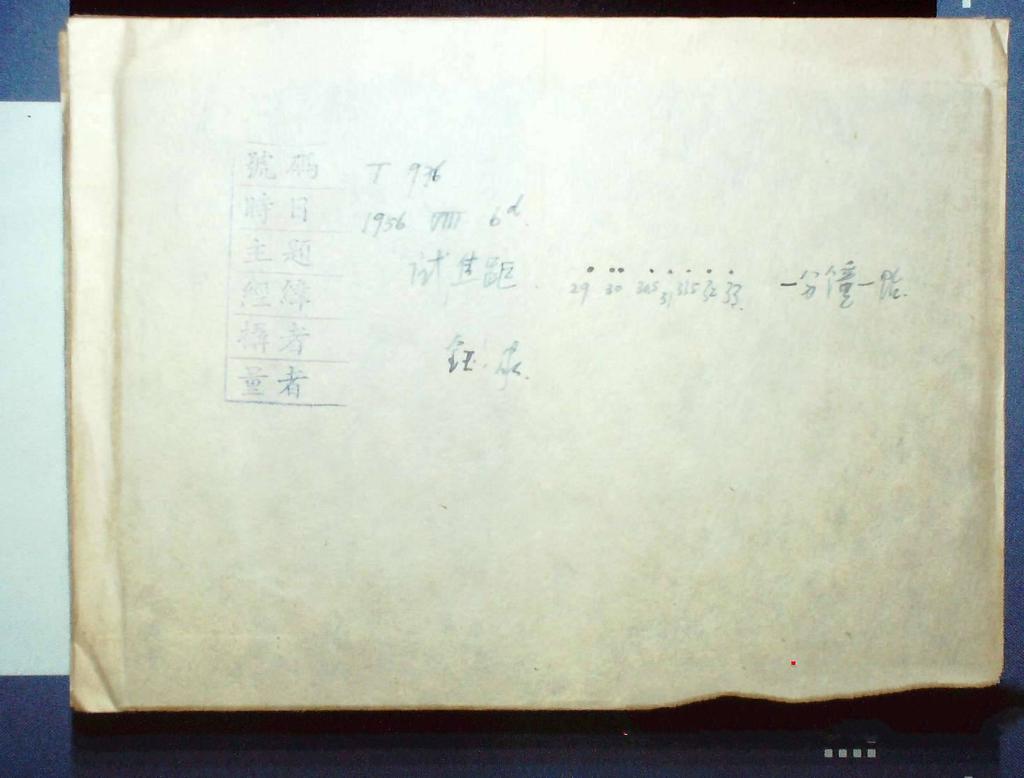 號碼 T 936
時日 1956 VIII 6d
主題 试焦距 29 30 30.5 31 31.5 32 33 一分鐘一张
經緯
攝者
量者